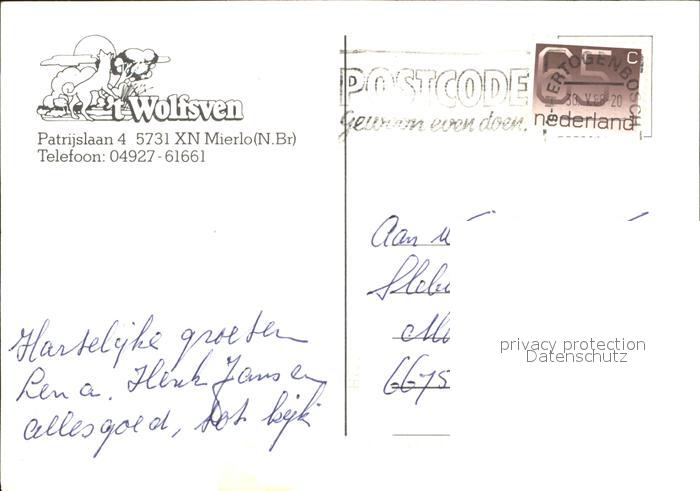 't Wolfsven
Patrijslaan 4 5731 XN Mierlo(N.Br)
Telefoon: 04927-61661
POSTCODE
gewoon even doen.
65 C
nederland
'S-HERTOGENBOSCH
Hartelijke groeten
Lena. Henk Jansen
alles goed, tot kijk
Aan
6675
privacy protection
Datenschutz